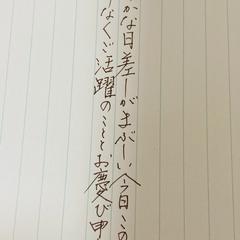 かな日差しがまぶしい今日この
なくご活躍のこととお慶び申